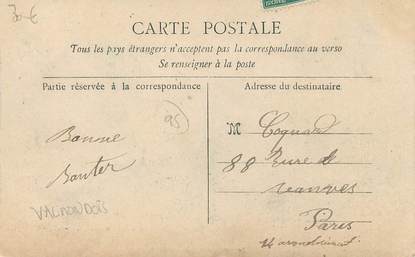 30 €
CARTE POSTALE
Tous les pays étrangers n'acceptent pas la correspondance au verso
Se renseigner à la poste
Partie réservée à la correspondance
Adresse du destinataire
95
Bonne
M Cognard
88 Rue de
Vanves
Paris
14
VALMONDOIS